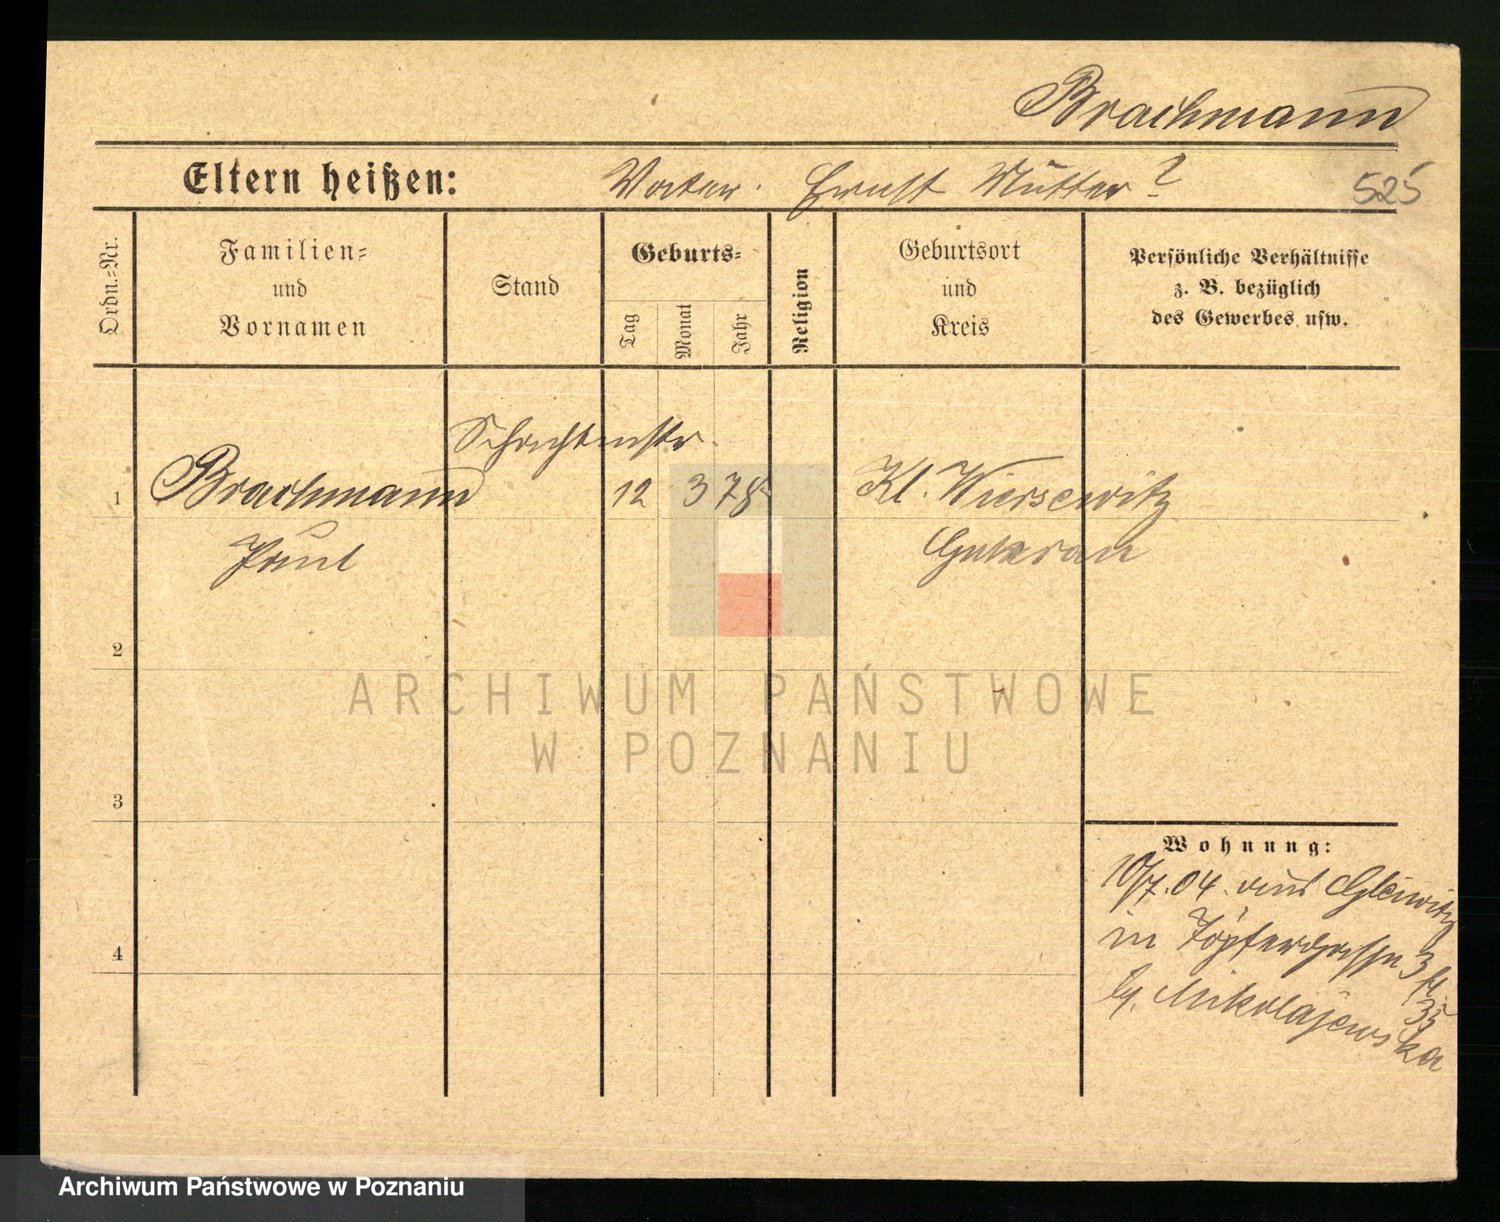 Brachmann
Eltern heißen: Vater. Ernst Mutter ?
525
Ordn.=Nr.
Familien=
und
Vornamen
Stand
Geburts=
Tag
Monat
Jahr
Religion
Geburtsort
und
Kreis
Persönliche Verhältnisse
z. B. bezüglich
des Gewerbes usw.
1
Brachmann
Paul
12 3 78
Kl. Wiersewitz
Guhrau
2
ARCHIWUM PAŃSTWOWE
W POZNANIU
3
4
Wohnung:
10/7.04. aus Gleiwitz
in Töpfergasse 3
b/. Mikolajewska
35
Archiwum Państwowe w Poznaniu